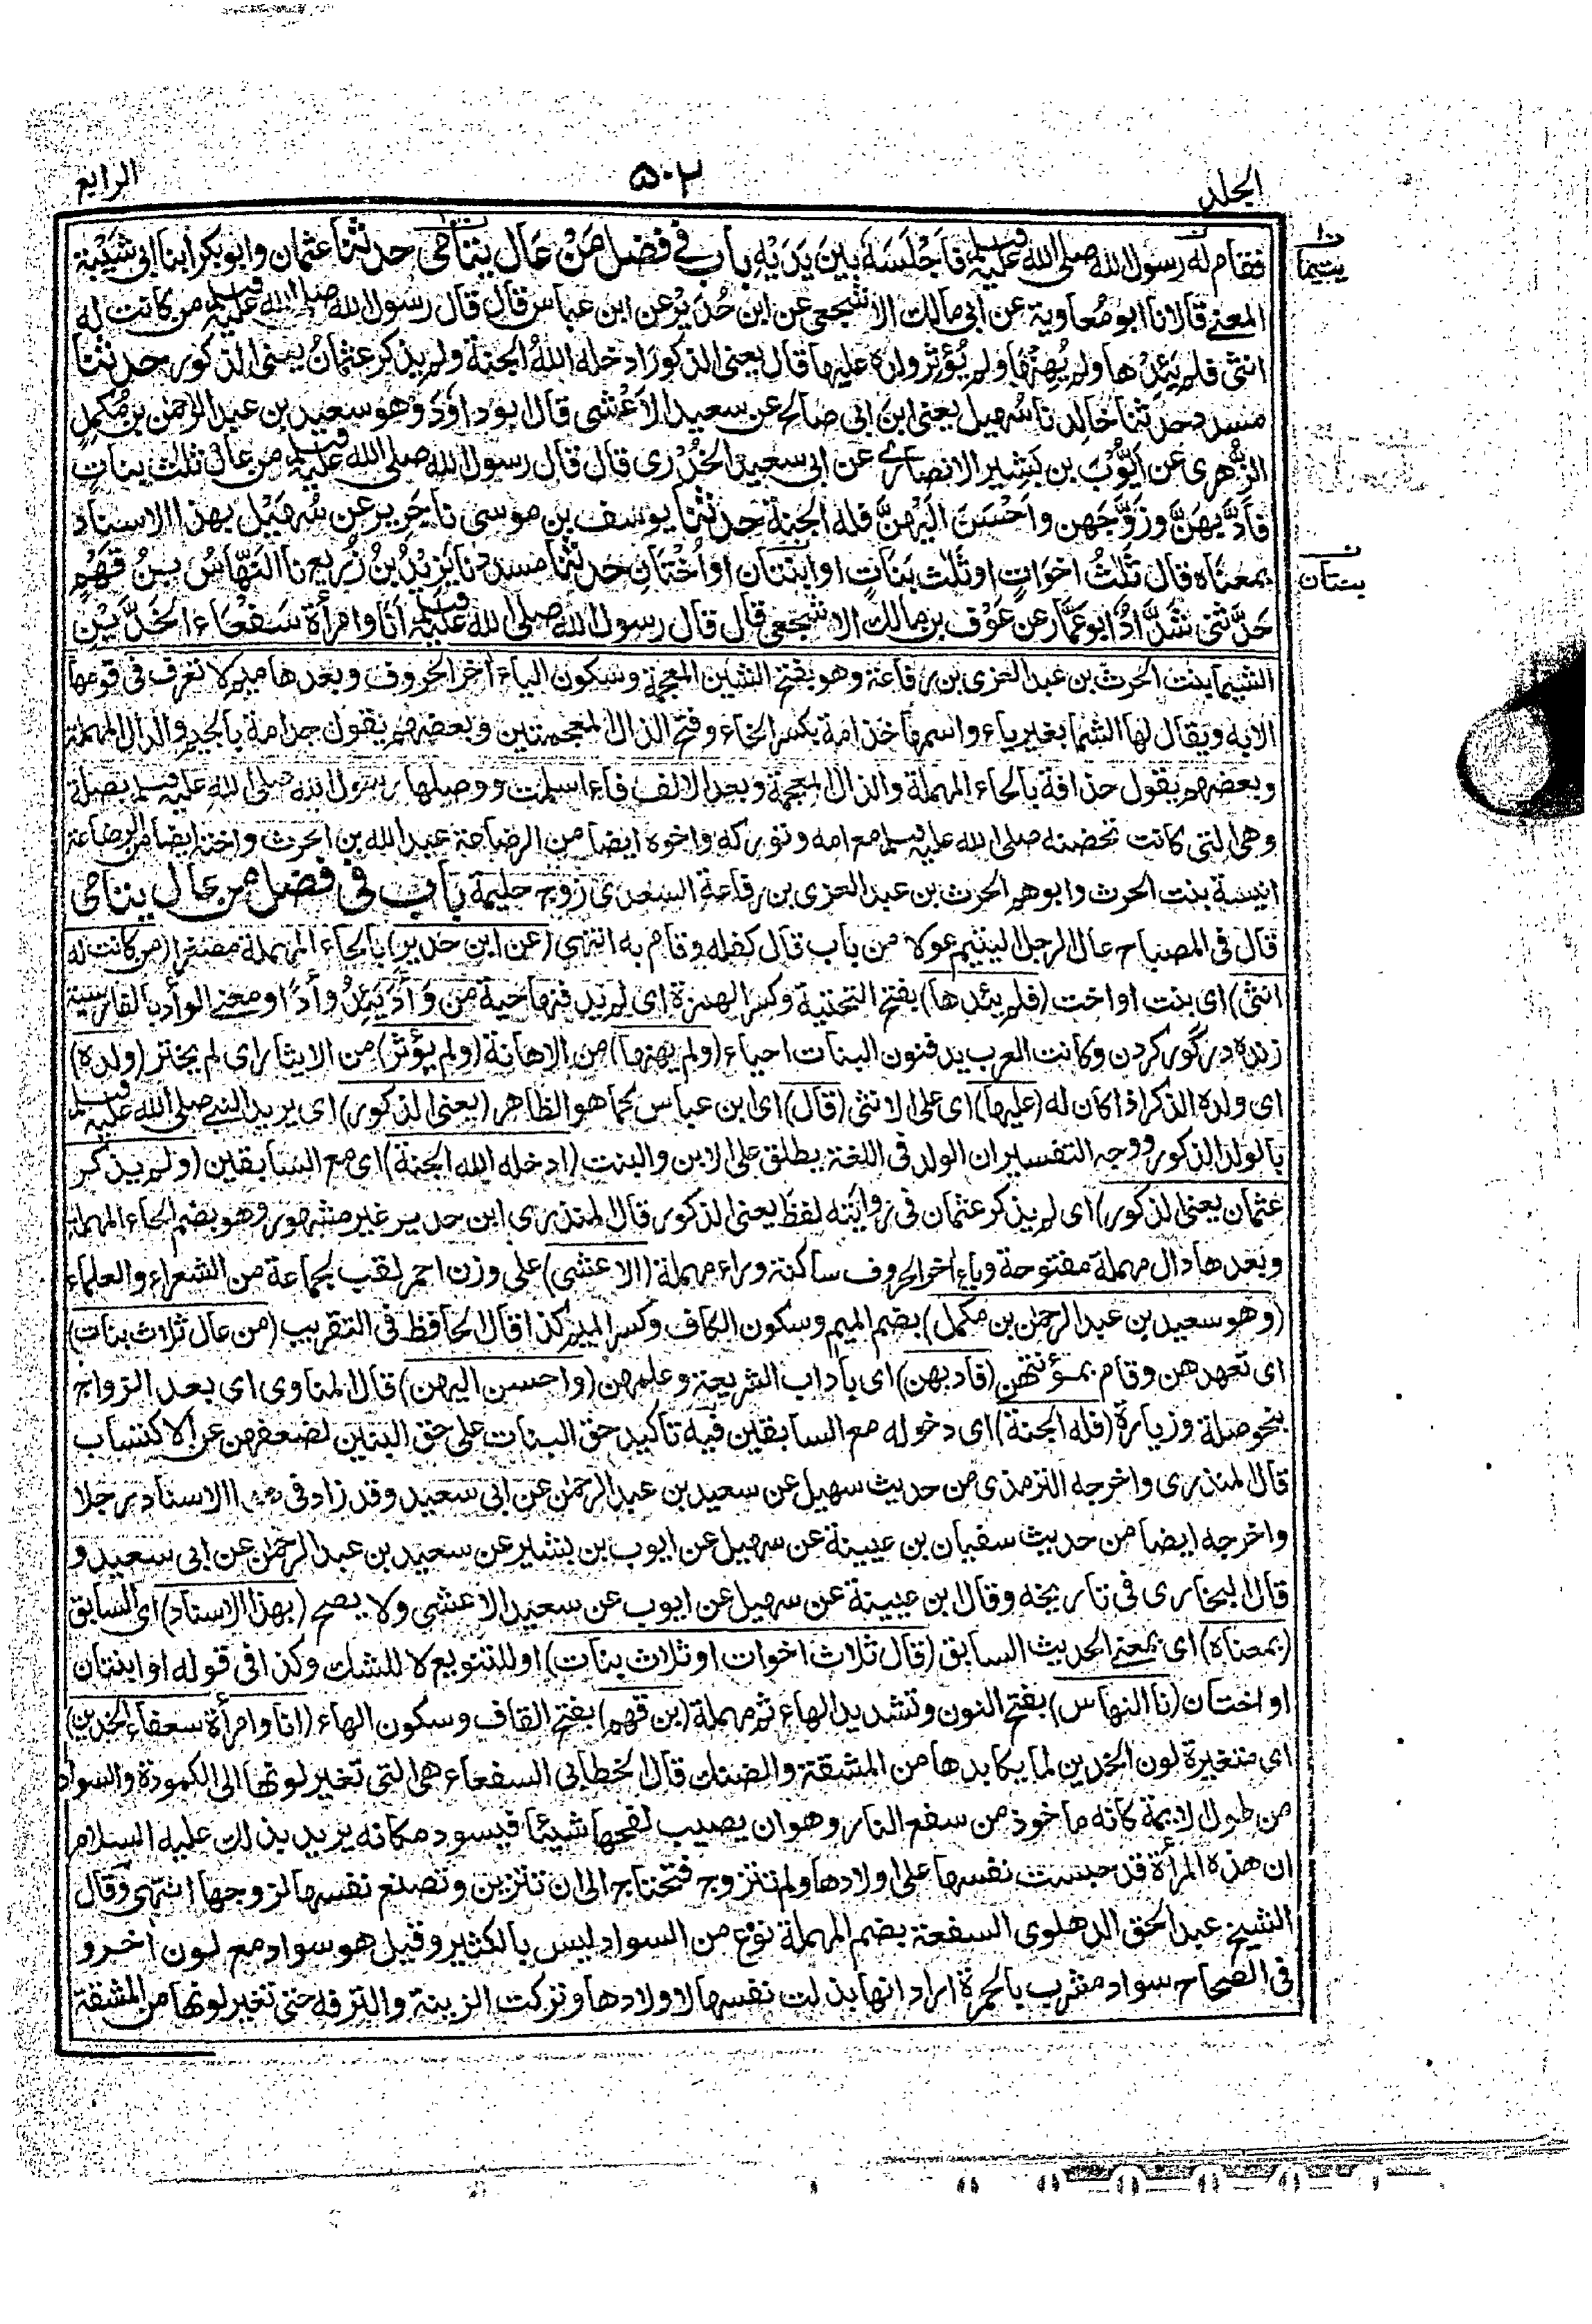 الجلد
٥٠٢
الرابع
فقام له رسول الله صلى الله عليه وسلم فَاَجْلَسَهُ بَيْنَ يَدَيْهِ باب في فضل مَنْ عَالَ يتامى حدثنا عثمان وابو بكر ابنا ابي شَيْبَة
يتيما
المعنى قالا نا ابو مُعاوية عن ابي مالك الاشجعي عن ابن حُدَيْرٍ عن ابن عباس قال قال رسول الله صلى الله عليه وسلم من كانت له
انثى فلم يَئِدْها ولم يُهِنْها ولم يُؤْثِرْ ولده عليها قال يعنى الذكور ادخله اللهُ الجنة ولم يذكر عثمانُ يعنى الذكور حدثنا
مسدد حدثنا خالد نا سُهيل يعنى ابنَ ابي صالح عن سعيد الاَعْشى قال ابو داوَدَ وهو سعيد بن عبد الرحمٰن بن مُكْمِلٍ
الزُّهرى عن اَيُّوْبَ بن بَشير الانصاري عن ابي سعيد الخُدْرى قال قال رسول الله صلى الله عليه وسلم من عال ثلث بناتٍ
فَاَدَّبَهنَّ وزَوَّجَهن واَحْسَنَ اليْهنَّ فله الجنة حدثنا يوسف بن موسى نا جَرير عن سُهَيْل بهذا الاسناد
بمعناه قال ثَلٰثُ اخَوَاتٍ او ثَلٰث بَنَاتٍ او ابنتان او اُخْتَانِ حدثنا مسدد نا يَزيْدُ بنُ زُرَيع نا النَّهّاسُ بنُ قَهْمٍ
بنتان
حَدَّثنى شَدَّادٌ ابو عَمَّار عن عَوْف بن مالك الاشجعي قال قال رسول الله صلى الله عليه وسلم اَنَا وامرأة سَفْعَاء الخَدَّيْن
الشيما بنت الحرث بن عبد العزى بن رفاعة وهو بفتح الشين المعجمة وسكون الياء اخر الحروف وبعدها ميم لا تعرف في قومها
الا به ويقال لها الشما بغير ياء واسمها خذامة بكسر الخاء وفتح الذال المعجمتين وبعضهم يقول جدامة بالجيم والدال المهملة
وبعضهم يقول حذافة بالحاء المهملة والذال المعجمة وبعد الالف فاء اسلمت ووصلها رسول الله صلى الله عليه وسلم بصلة
وهى التى كانت تحضنه صلى الله عليه وسلم مع امه وتوركه واخوه ايضا من الرضاعة عبد الله بن الحرث واخته ايضا من الرضاعة
انيسة بنت الحرث وابوهم الحرث بن عبد العزى بن رفاعة السعدى زوج حليمة باب في فضل من عال يتامى
قال في المصباح عال الرجل اليتيم عولا من باب قال كفله وقام به انتهى (عن ابن حدير) بالحاء المهملة مصغرا (من كانت له
انثى) اى بنت او اخت (فلم يئدها) بفتح التحتية وكسر الهمزة اى لم يدفنها حية من وَأَدَ يَئِدُ وأدًا ومعنى الوأد بالفارسية
زنده در گور كردن وكانت العرب يدفنون البنات احياء (ولم يهنها) من الاهانة (ولم يؤثر) من الايثار اى لم يختر (ولده)
اى ولده الذكر اذا كان له (عليها) اى على الانثى (قال) اى ابن عباس كما هو الظاهر (يعنى الذكور) اى يريد النبي صلى الله عليه وسلم
بالولد الذكور ووجه التفسير ان الولد في اللغة يطلق على الابن والبنت (ادخله الله الجنة) اى مع السابقين (ولم يذكر
عثمان يعنى الذكور) اى لم يذكر عثمان في روايته لفظ يعنى الذكور قال المنذرى ابن حدير غير مشهور وهو بضم الحاء المهملة
وبعدها دال مهملة مفتوحة وياء اخر الحروف ساكنة وراء مهملة (الاعشى) على وزن احمر لقب لجماعة من الشعراء والعلماء
(وهو سعيد بن عبد الرحمٰن بن مكمل) بضم الميم وسكون الكاف وكسر الميم كذا قال الحافظ في التقريب (من عال ثلاث بنات)
اى تعهدهن وقام بمؤنتهن (فادبهن) اى باداب الشريعة وعلمهن (واحسن اليهن) قال المناوى اى بعد الزواج
بنحو صلة وزيارة (فله الجنة) اى دخوله مع السابقين فيه تأكيد حق البنات على حق البنين لضعفهن عن الاكتساب
قال المنذرى واخرجه الترمذى من حديث سهيل عن سعيد بن عبد الرحمٰن عن ابي سعيد وقد زاد في هذا الاسناد رجلا
واخرجه ايضا من حديث سفيان بن عيينة عن سهيل عن ايوب بن بشير عن سعيد بن عبد الرحمٰن عن ابي سعيد و
قال البخارى في تاريخه وقال ابن عيينة عن سهيل عن ايوب عن سعيد الاعشى ولا يصح (بهذا الاسناد) اى السابق
(بمعناه) اى بمعنى الحديث السابق (قال ثلاث اخوات او ثلاث بنات) او للتنويع لا للشك وكذا في قوله او ابنتان
او اختان (نا النهاس) بفتح النون وتشديد الهاء ثم مهملة (بن قهم) بفتح القاف وسكون الهاء (انا وامرأة سعفاء الخدين)
اى متغيرة لون الخدين لما يكابدها من المشقة والضنك قال الخطابى السفعاء هى التى تغير لونها الى الكمودة والسواد
من طول الايمة كانه ماخوذ من سفع النار وهو ان يصيب لفحها شيئا فيسود مكانه يريد بذلك عليه السلام
ان هذه المرأة قد حبست نفسها على اولادها ولم تتزوج فتحتاج الى ان تتزين وتصنع نفسها لزوجها انتهى وقال
الشيخ عبد الحق الدهلوى السفعة بضم المهملة نوع من السواد ليس بالكثير وقيل هو سواد مع لون اخر و
في الصحاح سواد مشرب بالحمرة اراد انها بذلت نفسها لاولادها وتركت الزينة والترفه حتى تغير لونها من المشقة